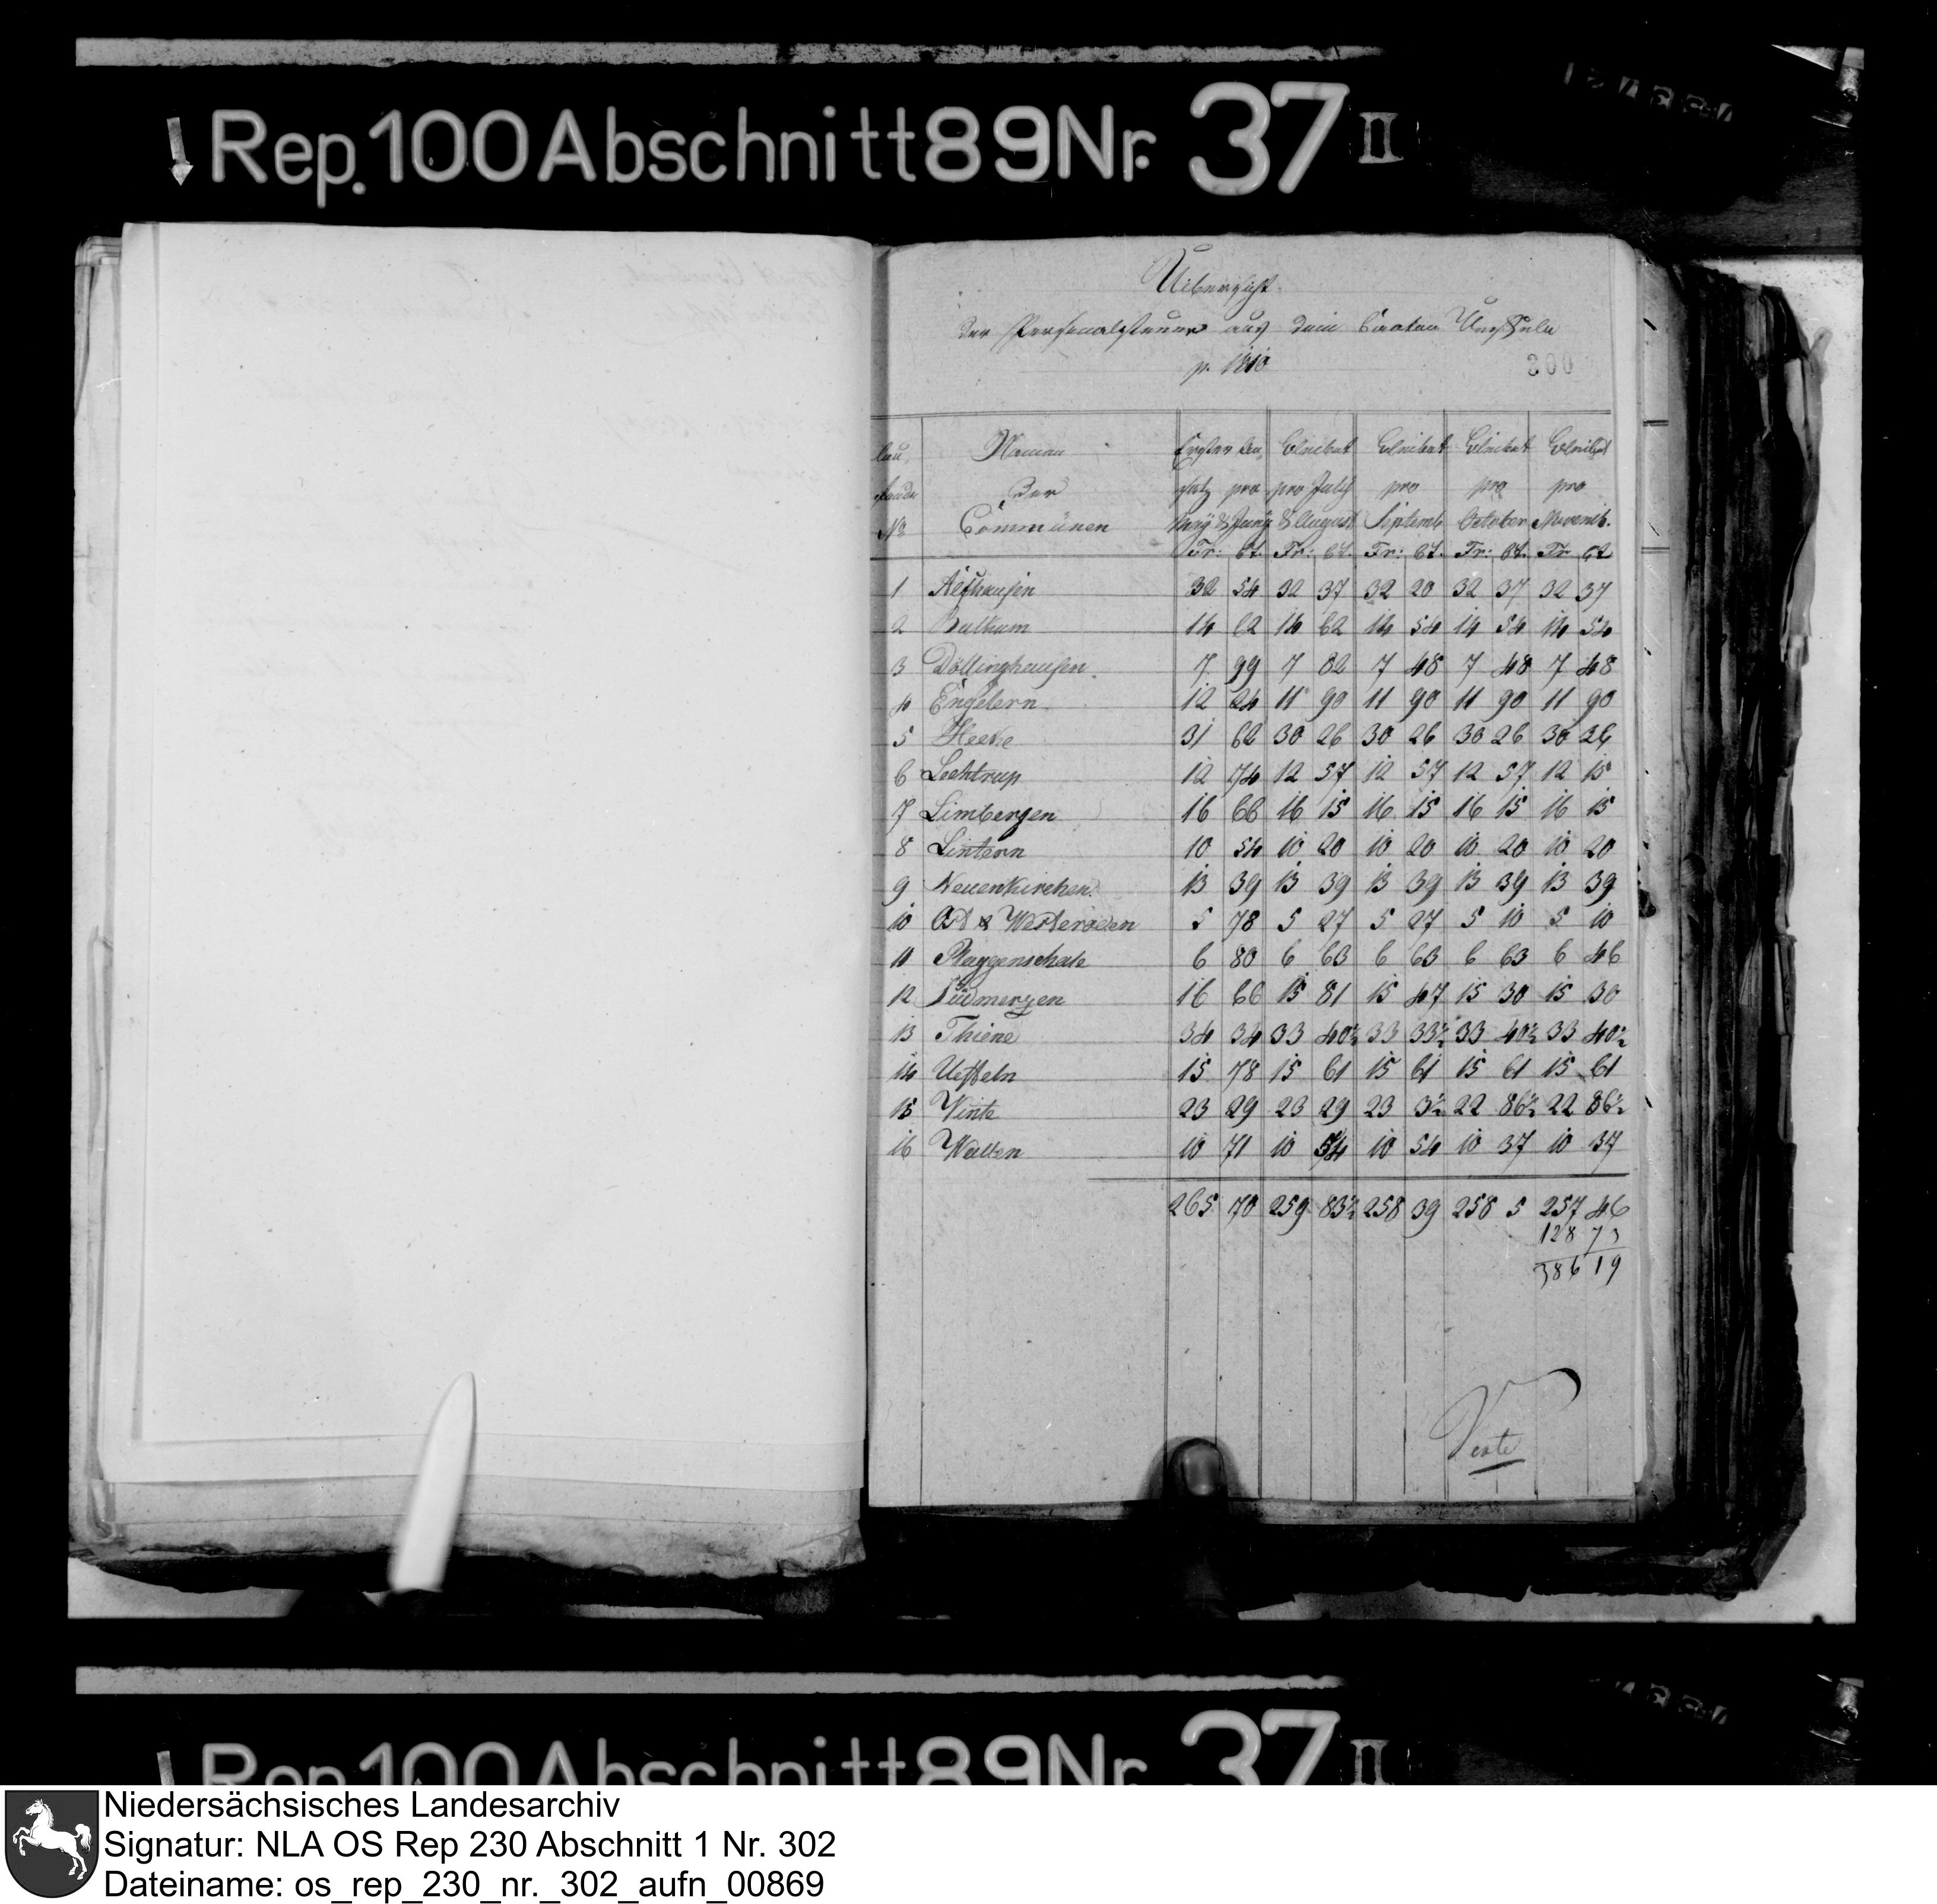 Rep. 100 Abschnitt 89 Nr. 37 II
Uibersicht
der Personalsteuer aus dem Canton Ueffeln
p. 1810
300
Lau Namen Erster An Erheb pro Erheb pro Erheb pro Erheb pro
fende der satz pro pro July pro pro pro
No Communen May & Juny & August Septemb October Novemb.
Fr: Ct. Fr: Ct. Fr: Ct. Fr: Ct. Fr Ct
1 Alfhausen 32 54 32 37 32 20 32 37 32 37
2 Balkum 14 62 14 62 14 54 14 54 14 54
3 Döllinghausen 7 99 7 82 7 48 7 48 7 48
4 Engelern 12 24 11 90 11 90 11 90 11 90
5 Heeke 31 62 30 26 30 26 30 26 30 26
6 Lechtrup 12 74 12 57 12 57 12 57 12 15
7 Limbergen 16 66 16 15 16 15 16 15 16 15
8 Lintern 10 54 10 20 10 20 10 20 10 20
9 Neuenkirchen 13 39 13 39 13 39 13 39 13 39
10 Ost & Westeroden 5 78 5 27 5 27 5 10 5 10
11 Plaggenschale 6 80 6 63 6 63 6 63 6 46
12 Südmerzen 16 66 15 81 15 47 15 30 15 30
13 Thiene 34 34 33 40½ 33 33½ 33 40½ 33 40½
14 Ueffeln 15 78 15 61 15 61 15 61 15 61
15 Vinte 23 29 23 29 23 3½ 22 86½ 22 86½
16 Wallen 10 71 10 54 10 54 10 37 10 37
265 70 259 83½ 258 39 258 5 257 46
128 73
386 19
Verte
Rep. 100 Abschnitt 89 Nr. 37 II
Niedersächsisches Landesarchiv
Signatur: NLA OS Rep 230 Abschnitt 1 Nr. 302
Dateiname: os_rep_230_nr._302_aufn_00869